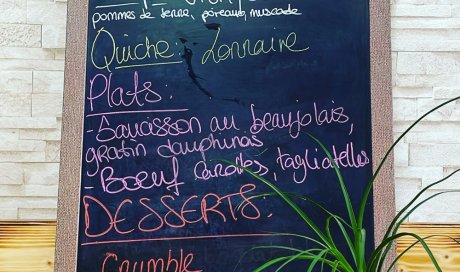 pommes de terre, poireaux, muscade
Quiche: Lorraine
Plats:
- Saucisson au beaujolais,
gratin dauphinois
- Boeuf carottes, tagliatelles
DESSERTS:
Crumble